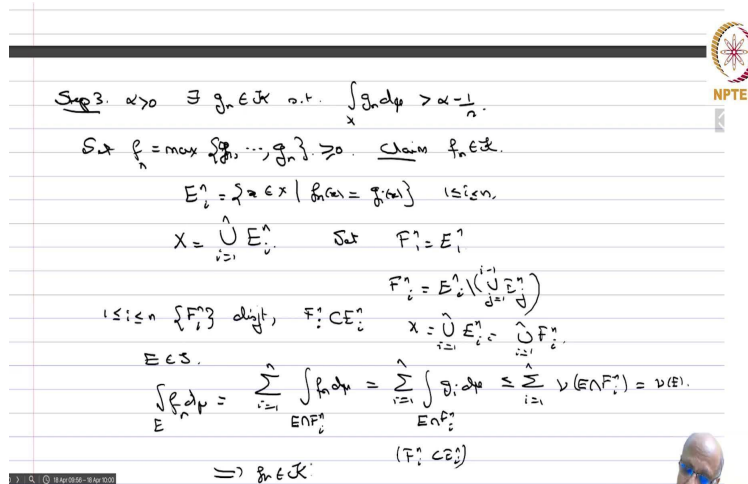 NPTE
Step 3. α>0 ∃ gₙ ∈ K s.t. ∫_X gₙ dμ > α - 1/n.
Set fₙ = max {g₁, ..., gₙ} ≥ 0. Claim fₙ ∈ K.
Eᵢⁿ = {x ∈ X | fₙ(x) = gᵢ(x)} 1≤i≤n.
X = ⋃_{i=1}^n Eᵢⁿ. Set F₁ⁿ = E₁ⁿ
Fᵢⁿ = Eᵢⁿ \ (⋃_{j=1}^{i-1} Eⱼⁿ)
1≤i≤n {Fᵢⁿ} disjt, Fᵢⁿ ⊂ Eᵢⁿ X = ⋃_{i=1}^n Eᵢⁿ = ⋃_{i=1}^n Fᵢⁿ.
E ∈ S.
∫_E fₙ dμ = ∑_{i=1}^n ∫_{E∩Fᵢⁿ} fₙ dμ = ∑_{i=1}^n ∫_{E∩Fᵢⁿ} gᵢ dμ ≤ ∑_{i=1}^n ν(E∩Fᵢⁿ) = ν(E).
(Fᵢⁿ ⊂ Eᵢⁿ)
⟹ fₙ ∈ K.
18 Apr 09:56 – 18 Apr 10:00